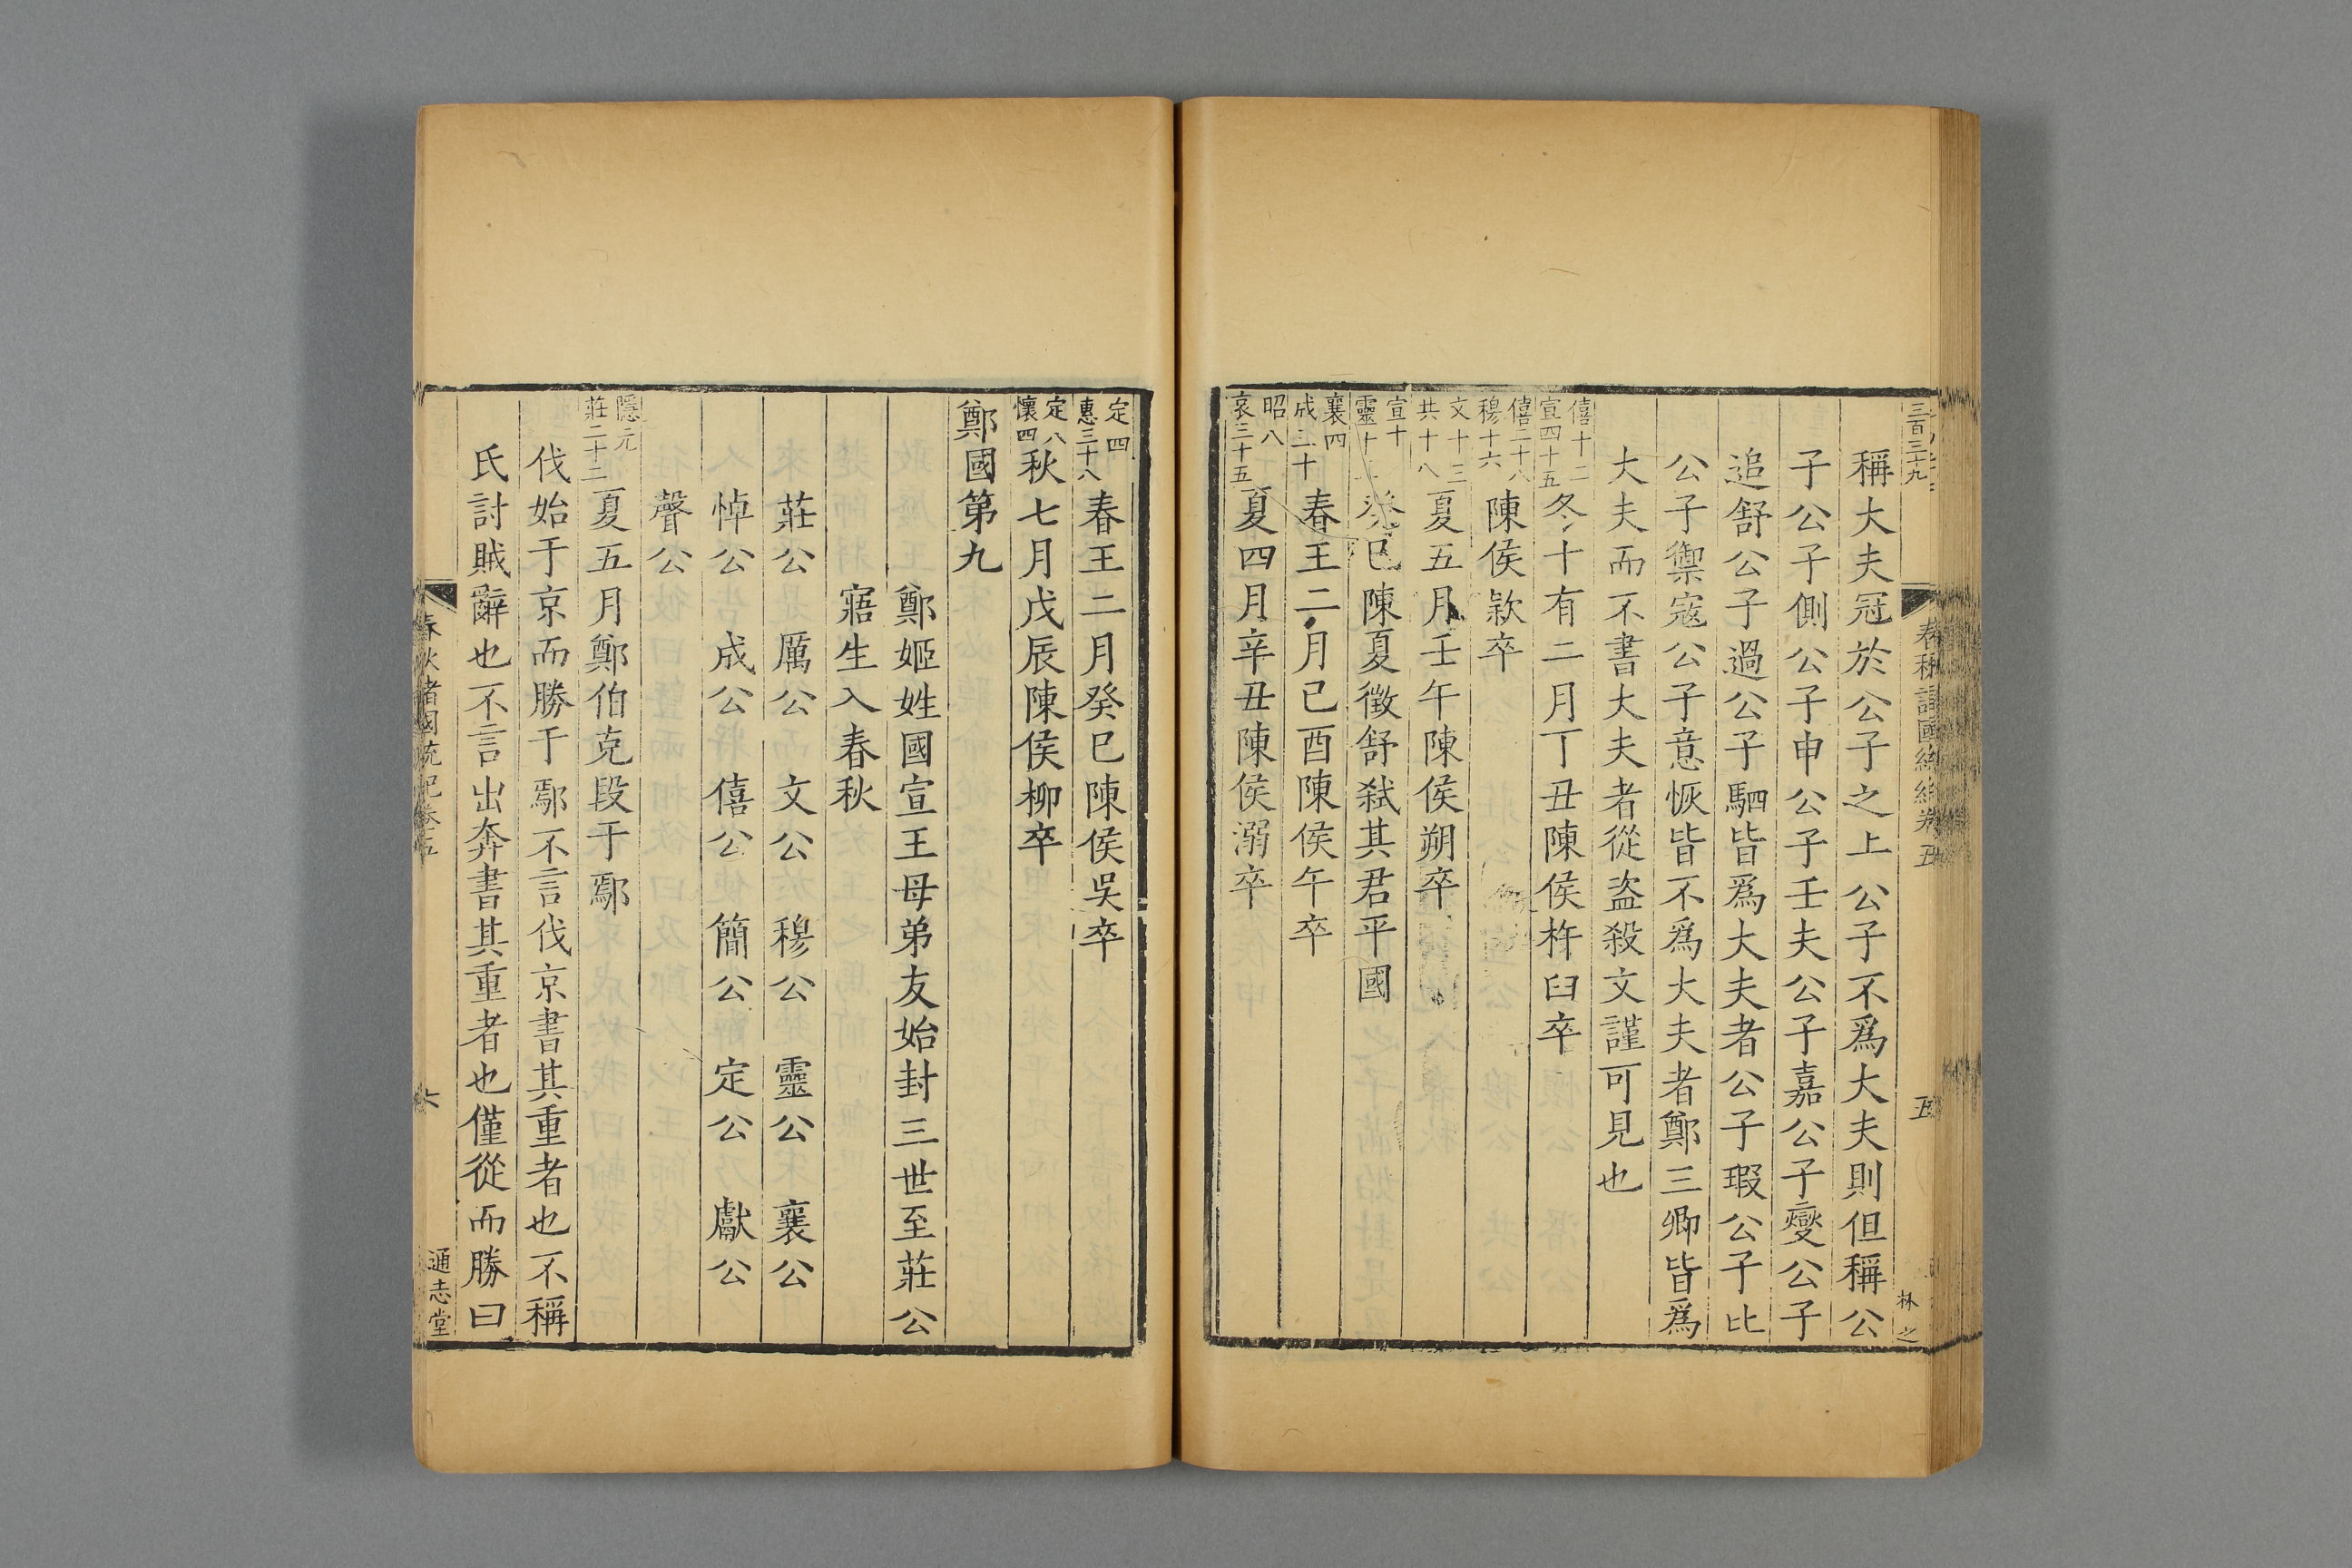 三百三九
春秋諸國統紀卷五
五
林之
稱大夫冠於公子之上公子不爲大夫則但稱公
子公子側公子申公子壬夫公子嘉公子燮公子
追舒公子過公子駟皆爲大夫者公子瑕公子比
公子禦寇公子意恢皆不爲大夫者鄭三卿皆爲
大夫而不書大夫者從盜殺文謹可見也
僖十二
宣四十五
冬十有二月丁丑陳侯杵臼卒
僖二十八
穆十六
陳侯款卒
文十三
共十八
夏五月壬午陳侯朔卒
宣十
靈十
癸巳陳夏徵舒弒其君平國
襄四
成三十
春王二月己酉陳侯午卒
昭八
哀三十五
夏四月辛丑陳侯溺卒
定四
惠三十八
春王二月癸巳陳侯吳卒
定八
懷四
秋七月戊辰陳侯柳卒
鄭國第九
鄭姬姓國宣王母弟友始封三世至莊公
寤生入春秋
莊公 厲公 文公 穆公 靈公 襄公
悼公 成公 僖公 簡公 定公 獻公
聲公
隱元
莊二十二
夏五月鄭伯克段于鄢
伐始于京而勝于鄢不言伐京書其重者也不稱
氏討賊辭也不言出奔書其重者也僅從而勝曰
春秋諸國統紀卷五
六
通志堂